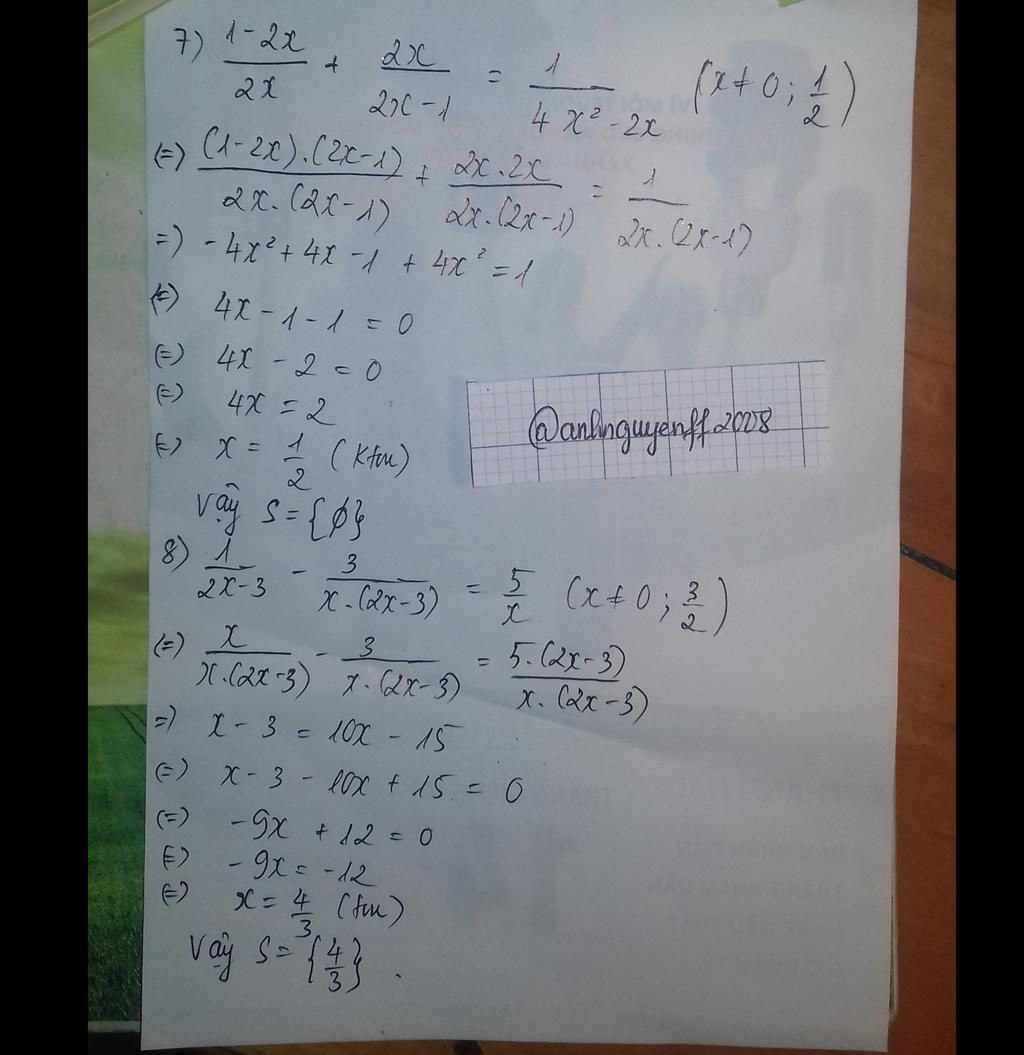 7) (1-2x)/(2x) + (2x)/(2x-1) = 1/(4x²-2x) (x≠0; 1/2)
(=) ((1-2x).(2x-1))/(2x.(2x-1)) + (2x.2x)/(2x.(2x-1)) = 1/(2x.(2x-1))
=) -4x²+4x-1 + 4x² = 1
(=) 4x-1-1 = 0
(=) 4x - 2 = 0
(=) 4x = 2
@anhnguyenff2008
(=) x = 1/2 (Ktm)
Vậy S={∅}
8) 1/(2x-3) - 3/(x.(2x-3)) = 5/x (x≠0; 3/2)
(=) x/(x.(2x-3)) - 3/(x.(2x-3)) = (5.(2x-3))/(x.(2x-3))
=) x-3 = 10x-15
(=) x-3-10x+15 = 0
(=) -9x + 12 = 0
(=) -9x = -12
(=) x = 4/3 (tm)
Vậy S={4/3}.